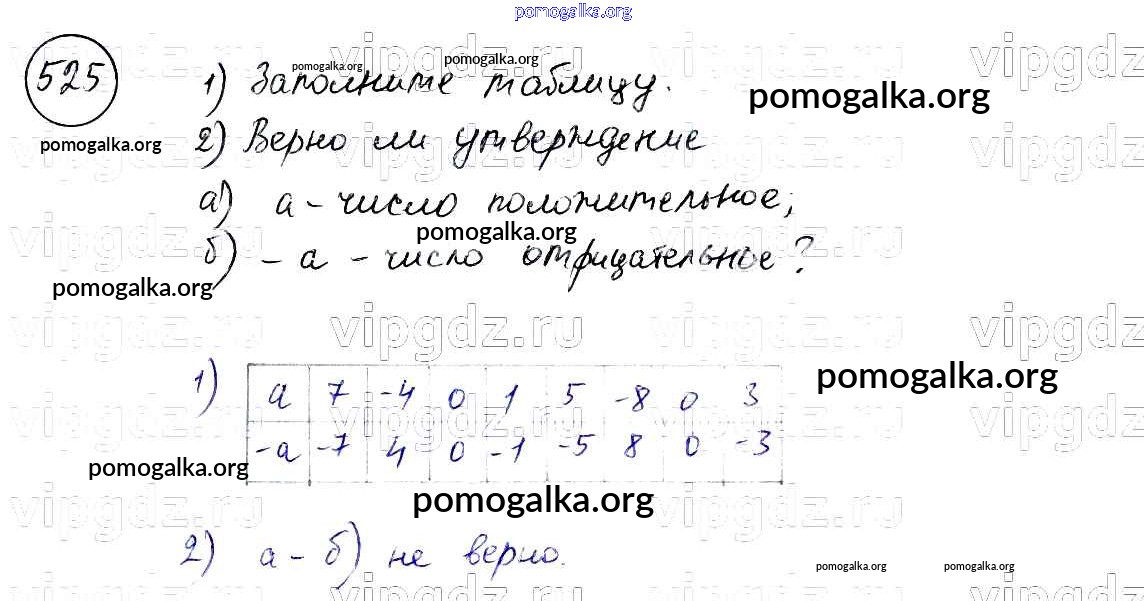 pomogalka.org
525
1) Заполните таблицу.
2) Верно ли утверждение
а) а – число положительное;
б) – а – число отрицательное?
1)
а 7 -4 0 1 5 -8 0 3
-а -7 4 0 -1 -5 8 0 -3
2) а – б) не верно.
pomogalka.org
pomogalka.org
pomogalka.org
pomogalka.org
pomogalka.org
pomogalka.org
pomogalka.org
pomogalka.org
pomogalka.org
pomogalka.org
pomogalka.org
vipgdz.ru